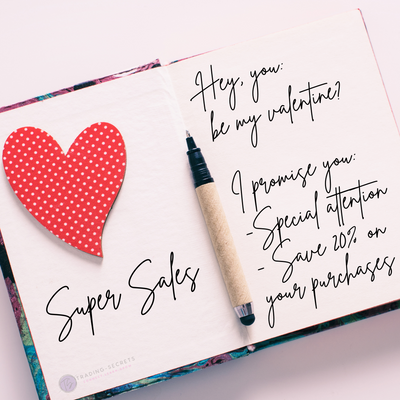 Super Sales
TRADING-SECRETS
Hey, you:
be my valentine?
I promise you:
-Special attention
- Save 20% on
your purchases